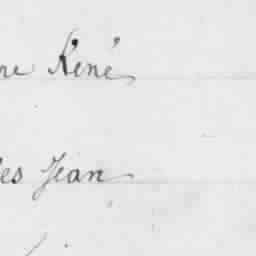 ne René
es Jean